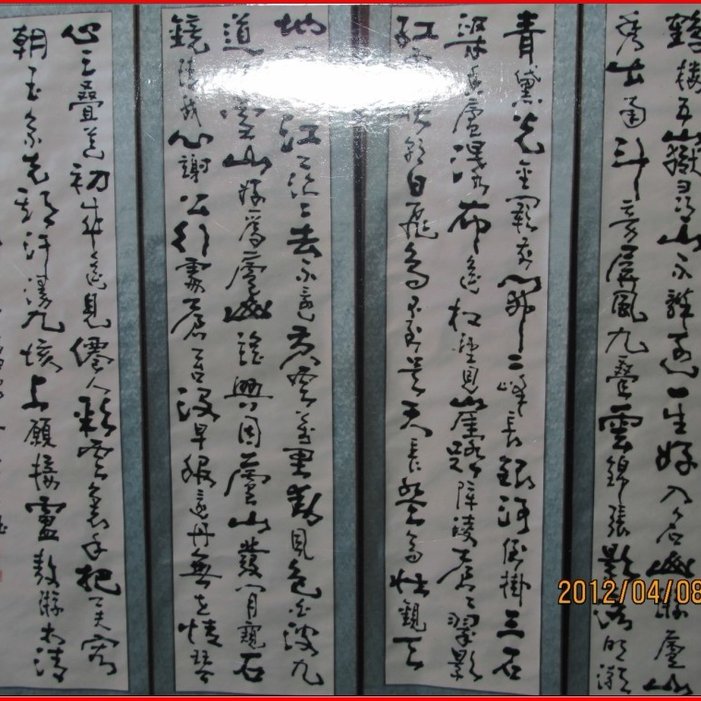 鶴樓五嶽尋山不辭遠一生好入名山游廬山
秀出南斗傍屏風九疊雲錦張影落明湖
青黛光金闕前開二峰長銀河倒掛三石
梁香爐瀑布遙相望崖沓障凌蒼蒼翠影
紅霞映朝日飛鳥不到吳天長登高壯觀天
地江茫茫去不還黃雲萬里動風色白波九
道雪山好為廬山謠興因廬山發閒窺石
鏡清我心謝公行處蒼苔沒早服還丹無世情琴
心三疊道初成遙見僊人彩雲裏手把芙蓉
朝玉京先期汗漫九垓上願接盧敖游太清
2012/04/08